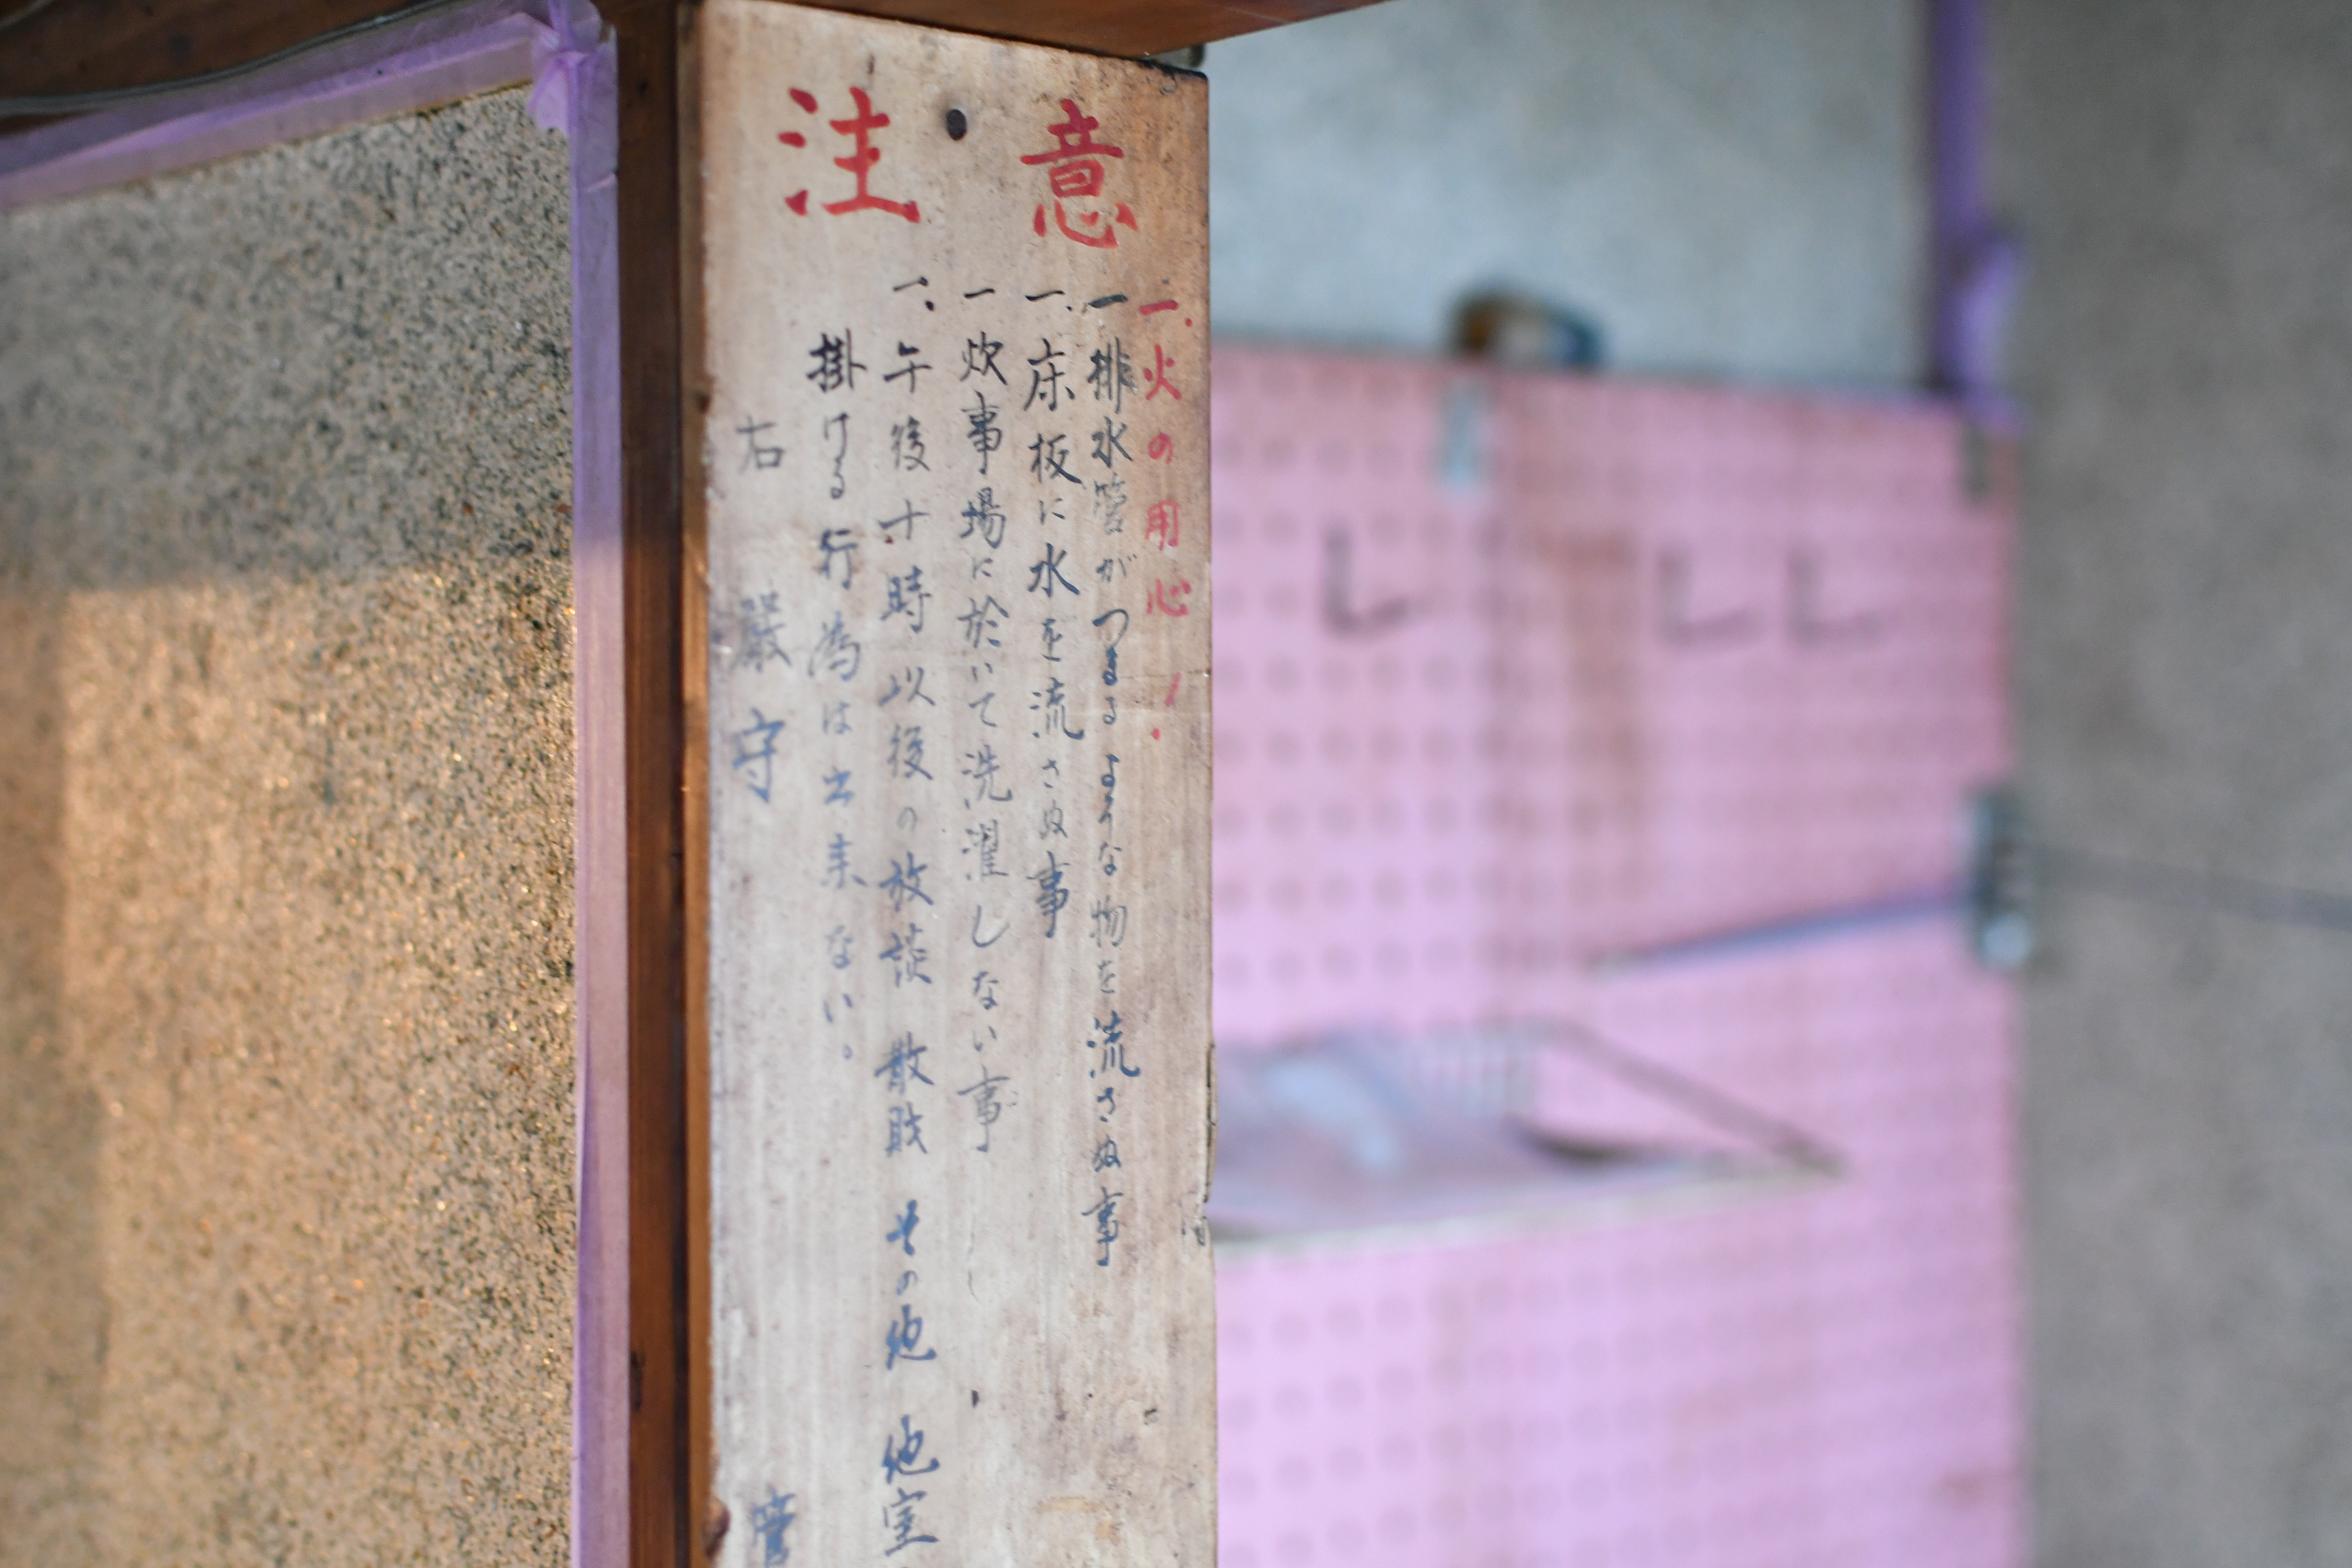 注意
一、火の用心！
一排水管がつまるような物を流さぬ事
一、床板に水を流さぬ事
一炊事場に於いて洗濯しない事
一、午後十時以後の放談 散財 その他 他室
掛ける行為は出来ない。
右 厳守
管